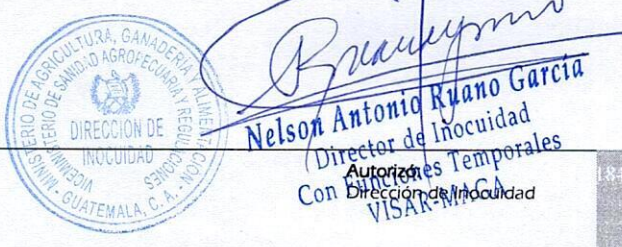 MINISTERIO DE AGRICULTURA, GANADERIA Y ALIMENTACION
VICEMINISTERIO DE SANIDAD AGROPECUARIA Y REGULACIONES
DIRECCION DE
INOCUIDAD
GUATEMALA, C. A.
Nelson Antonio Ruano García
Director de Inocuidad
Con Funciones Temporales
VISAR-MAGA
Autorizó:
Dirección de Inocuidad